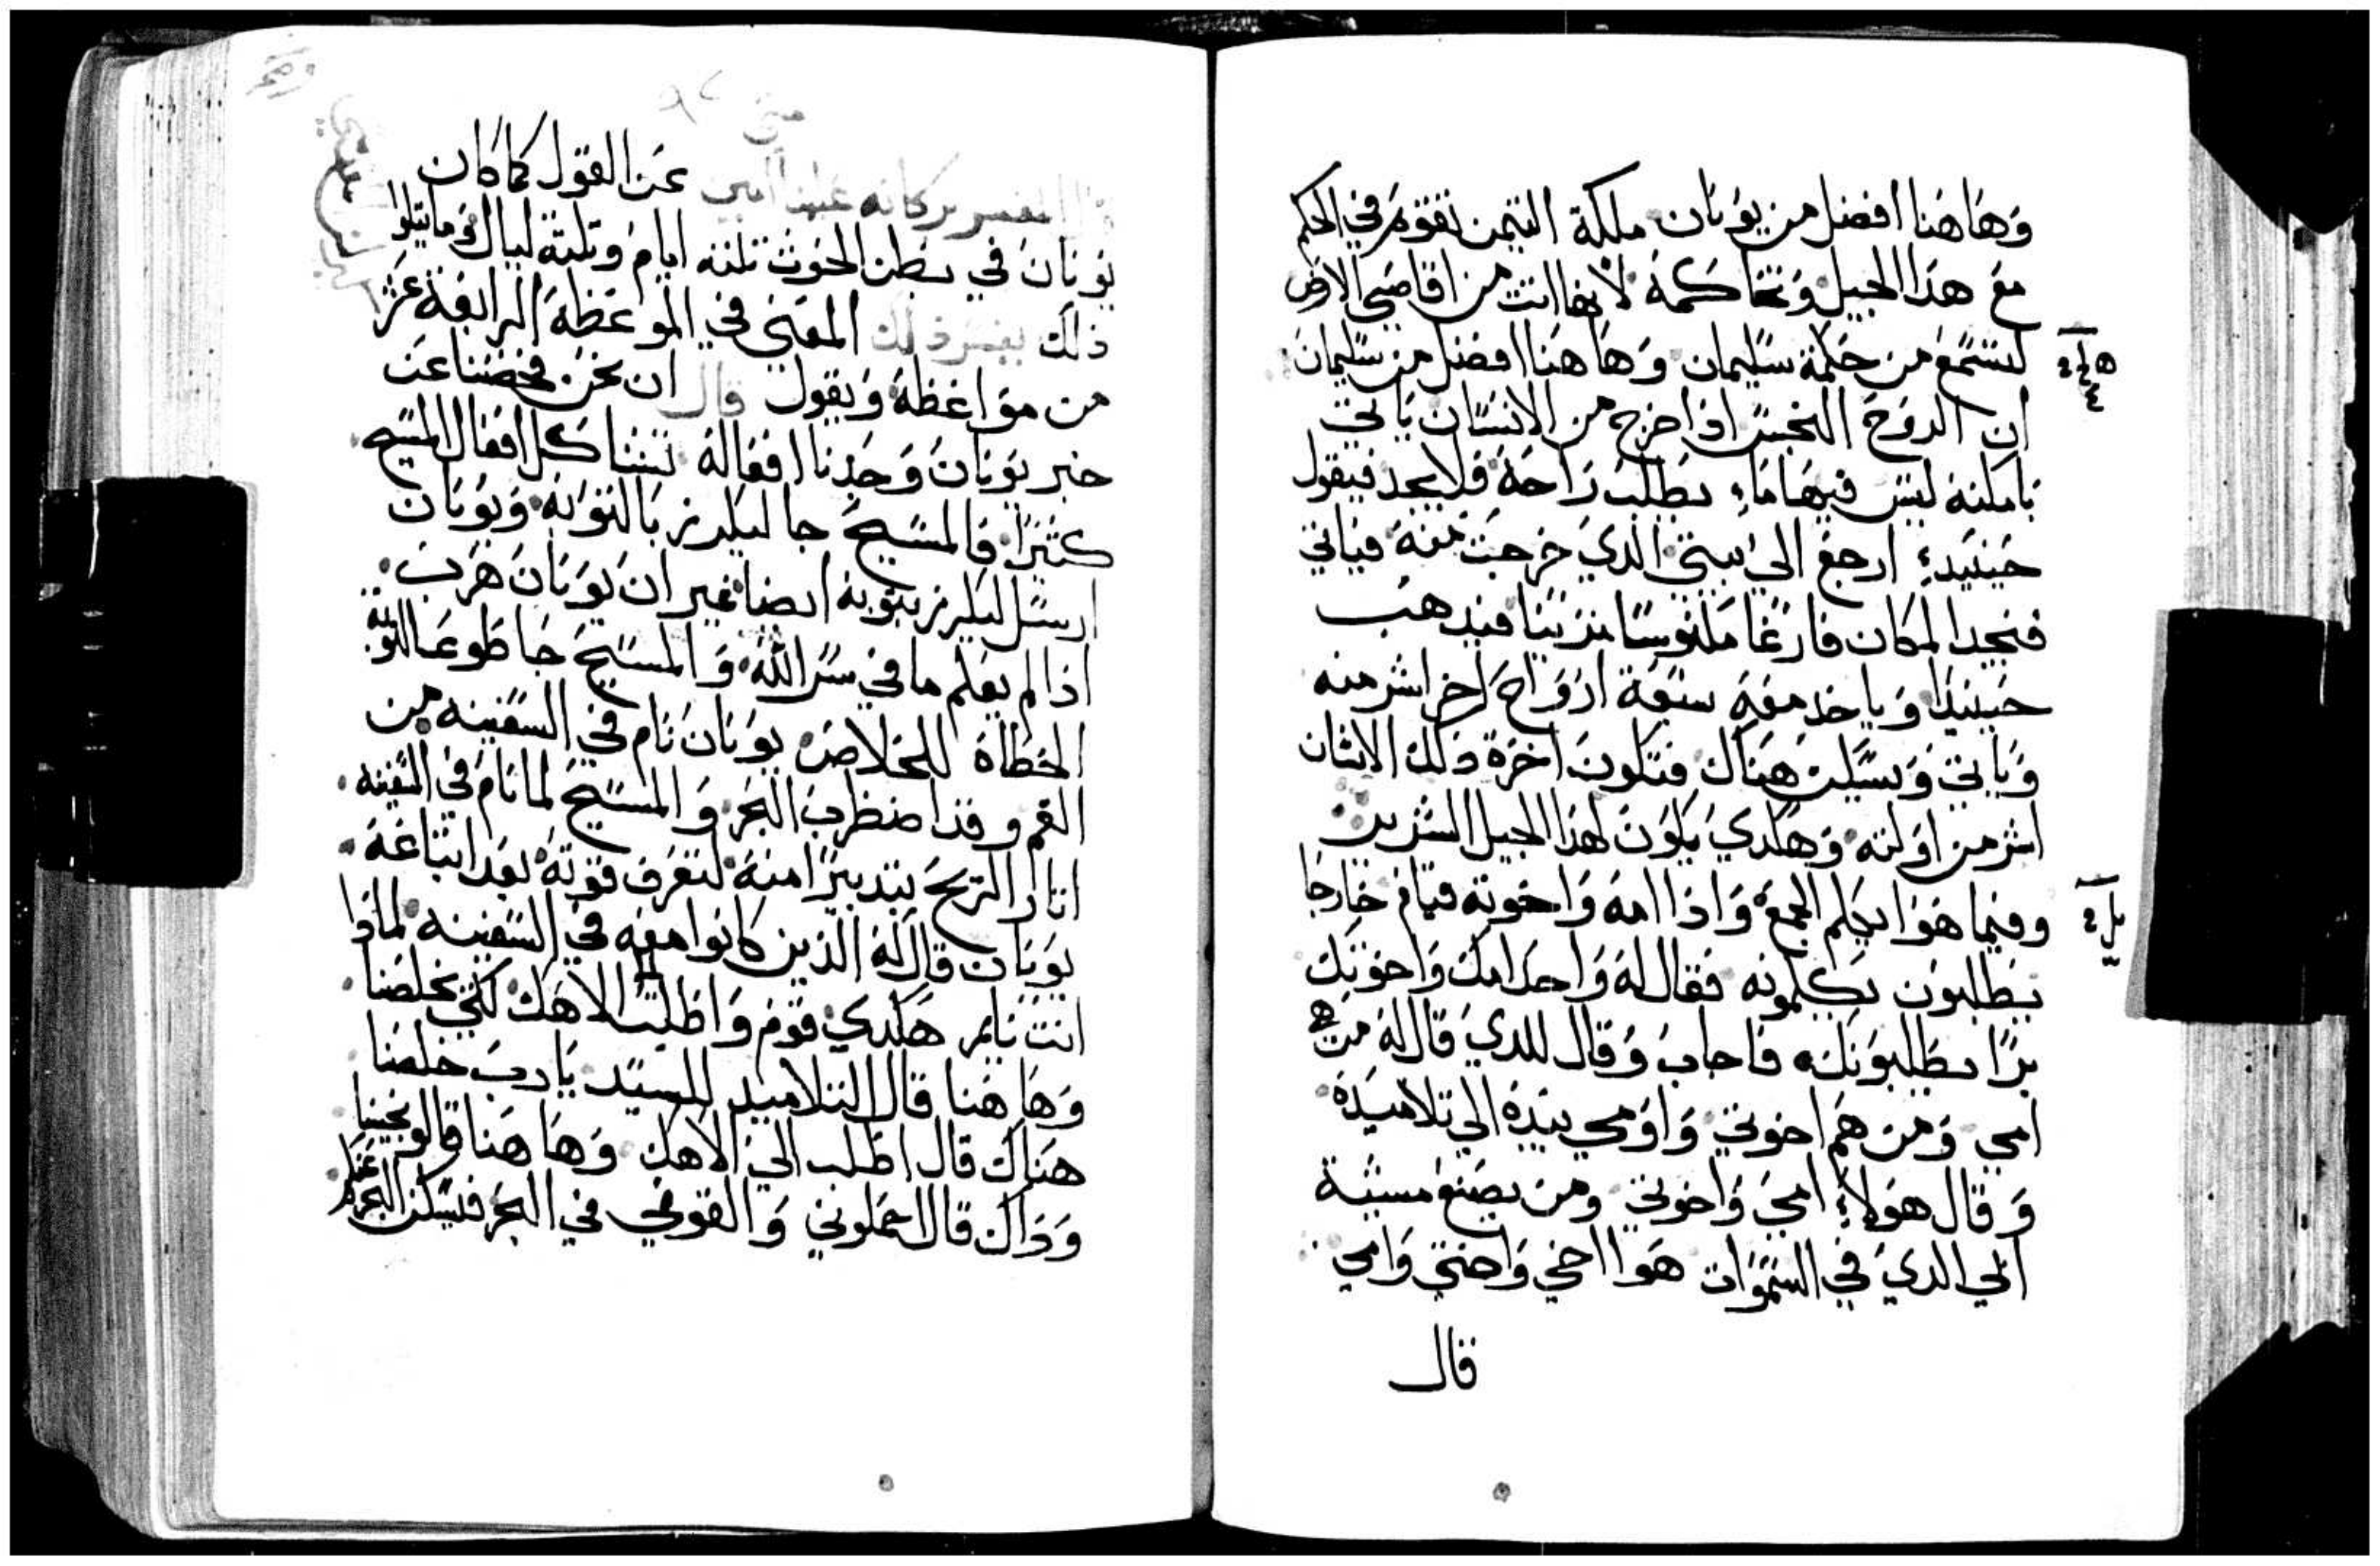 وهاهنا افضل من يونان ملكة التيمن تقوم في الحكم
مع هذا الجيل وتحاكمة لانها اتت من اقاصي الارض
لتستمع من حكمة سليمان وهاهنا افضل من سليمان
ان الروح النجس اذا خرج من الانسان ياتي
بامكنة ليس فيها ماء يطلب راحة فلا يجد فيقول
حينيدء ارجع الى بيتي الدي خرجت منه فياتي
فيجد المكان فارغا مكنوسا مزينا فيدهب
حينيدا وياخد معه سبعة ارواح اخر اشر منه
وياتي ويسكن هناك فتكون اخرة دلك الانسان
اشر من اولته وهكدي يكون لهدا الجيل الشرير
وفيما هوا يكلم الجمع واذا امه واخوته قيام خارجا
يطلبون يكلمونه فقال له واحد امك واخوتك
برا يطلبونك فاجاب وقال للدي قال له من هي
امي ومن هم اخوتي واومي بيده الي تلاميده
وقال هولاء امي واخوتي ومن يصنع مسية
ابي الدي في السموات هوا اخي واختي وامي
قال
متى
المفسر بركاته علينا امين عن القول كما كان
يونان في بطن الحوت تلتة ايام وتلتة ليال وما يتلوا
ذلك يفسر ذلك المعني في الموعظة الرابعة عشر
من مواعظه ويقول قال ان نحن فحصنا عن
خبر يونان وجدنا افعاله تشاكل افعال المسيح
كتيرا فالمسيح جا ليكرز بالتوبة ويونان
ارسل ليكرز بتوبة ايضا غير ان يونان هرب
اذا لم يعلم ما في سر الله والمسيح جا طوعا لتوبة
الخطاة للخلاص يونان نام في السفينه من
الغم وقد اضطرب البحر والمسيح لما نام في السفينه
اتار الريح بتدبيرا منه لتعرف قوته بعد انتباهه
يونان قال له الذين كانوا معه في السفينه لماذا
انت نايم هكدي قوم واطلب الي الاهك لكي يخلصنا
وهاهنا قال التلاميد للسيد يارب خلصنا
هناك قال اطلب الي الاهك وهاهنا قالو نجينا
وداك قال احملوني والقوني في البحر فيسكن البحر عنكم